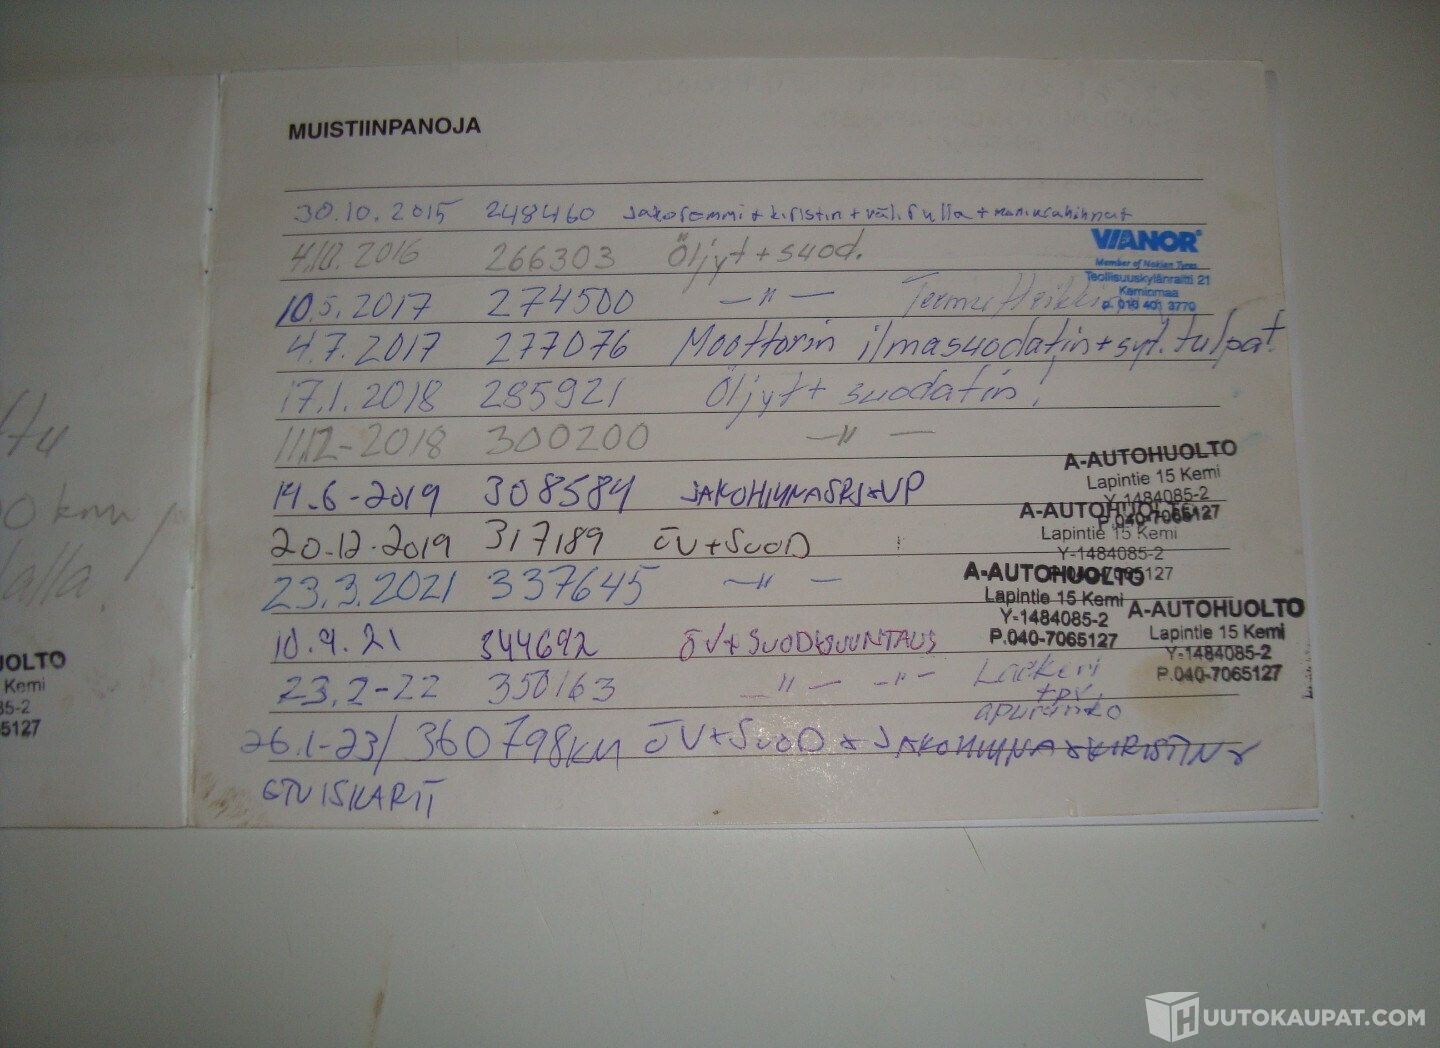 MUISTIINPANOJA
30.10.2015 248460 jakoremmi + kiristin + välirulla +
4.10.2016 266303 Öljyt + suod.
VIANOR
Member of Nokian Tyres
Teollisuuskylänraitti 21
Keminmaa
p. 010 401 3770
10.5.2017 274500 —"—
4.7.2017 277076 Moottorin ilmasuodatin + syt. tulpat.
17.1.2018 285921 Öljyt + suodatin!
11.12-2018 300200 —"—
A-AUTOHUOLTO
Lapintie 15 Kemi
Y-1484085-2
P.040-7065127
14.6-2019 308584
A-AUTOHUOLTO
Lapintie 15 Kemi
Y-1484085-2
P.040-7065127
20.12-2019 317189 ÖV+SUOD
23.3.2021 337645 —"—
A-AUTOHUOLTO
Lapintie 15 Kemi
Y-1484085-2
P.040-7065127
A-AUTOHUOLTO
Lapintie 15 Kemi
Y-1484085-2
P.040-7065127
10.9.21 344692 ÖV+SUOD+SUUNTAUS
23.2-22 350163 —"— —"—
apurunko
26.1-23/ 360798KM ÖV+SUOD + JAKOHIHNA+KIRISTIN+
ETUISKARIT
ttu
0 km
lalla!
UOLTO
Kemi
85-2
65127
HUUTOKAUPAT.COM